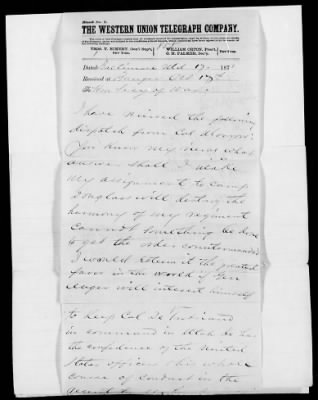 Blank No. 1.
THE WESTERN UNION TELEGRAPH COMPANY.
WILLIAM ORTON, Pres't,
O. H. PALMER, Sec'y,
New York.
Dated Baltimore Md 17 187
Received at Oct 17th
To Hon Secy of War
I have received the following
dispatch from Col
You know my views what
answer shall I make
My assignment to Camp
Douglass will destroy the
harmony of my regiment
Cannot something be done
to get the order countermanded
I would esteem it the greatest
favor in the world if Gen
Auger will interest himself
to keep Col De Trobriand
in command in Utah he has
the confidence of the United
States officers his whole
course of conduct in the